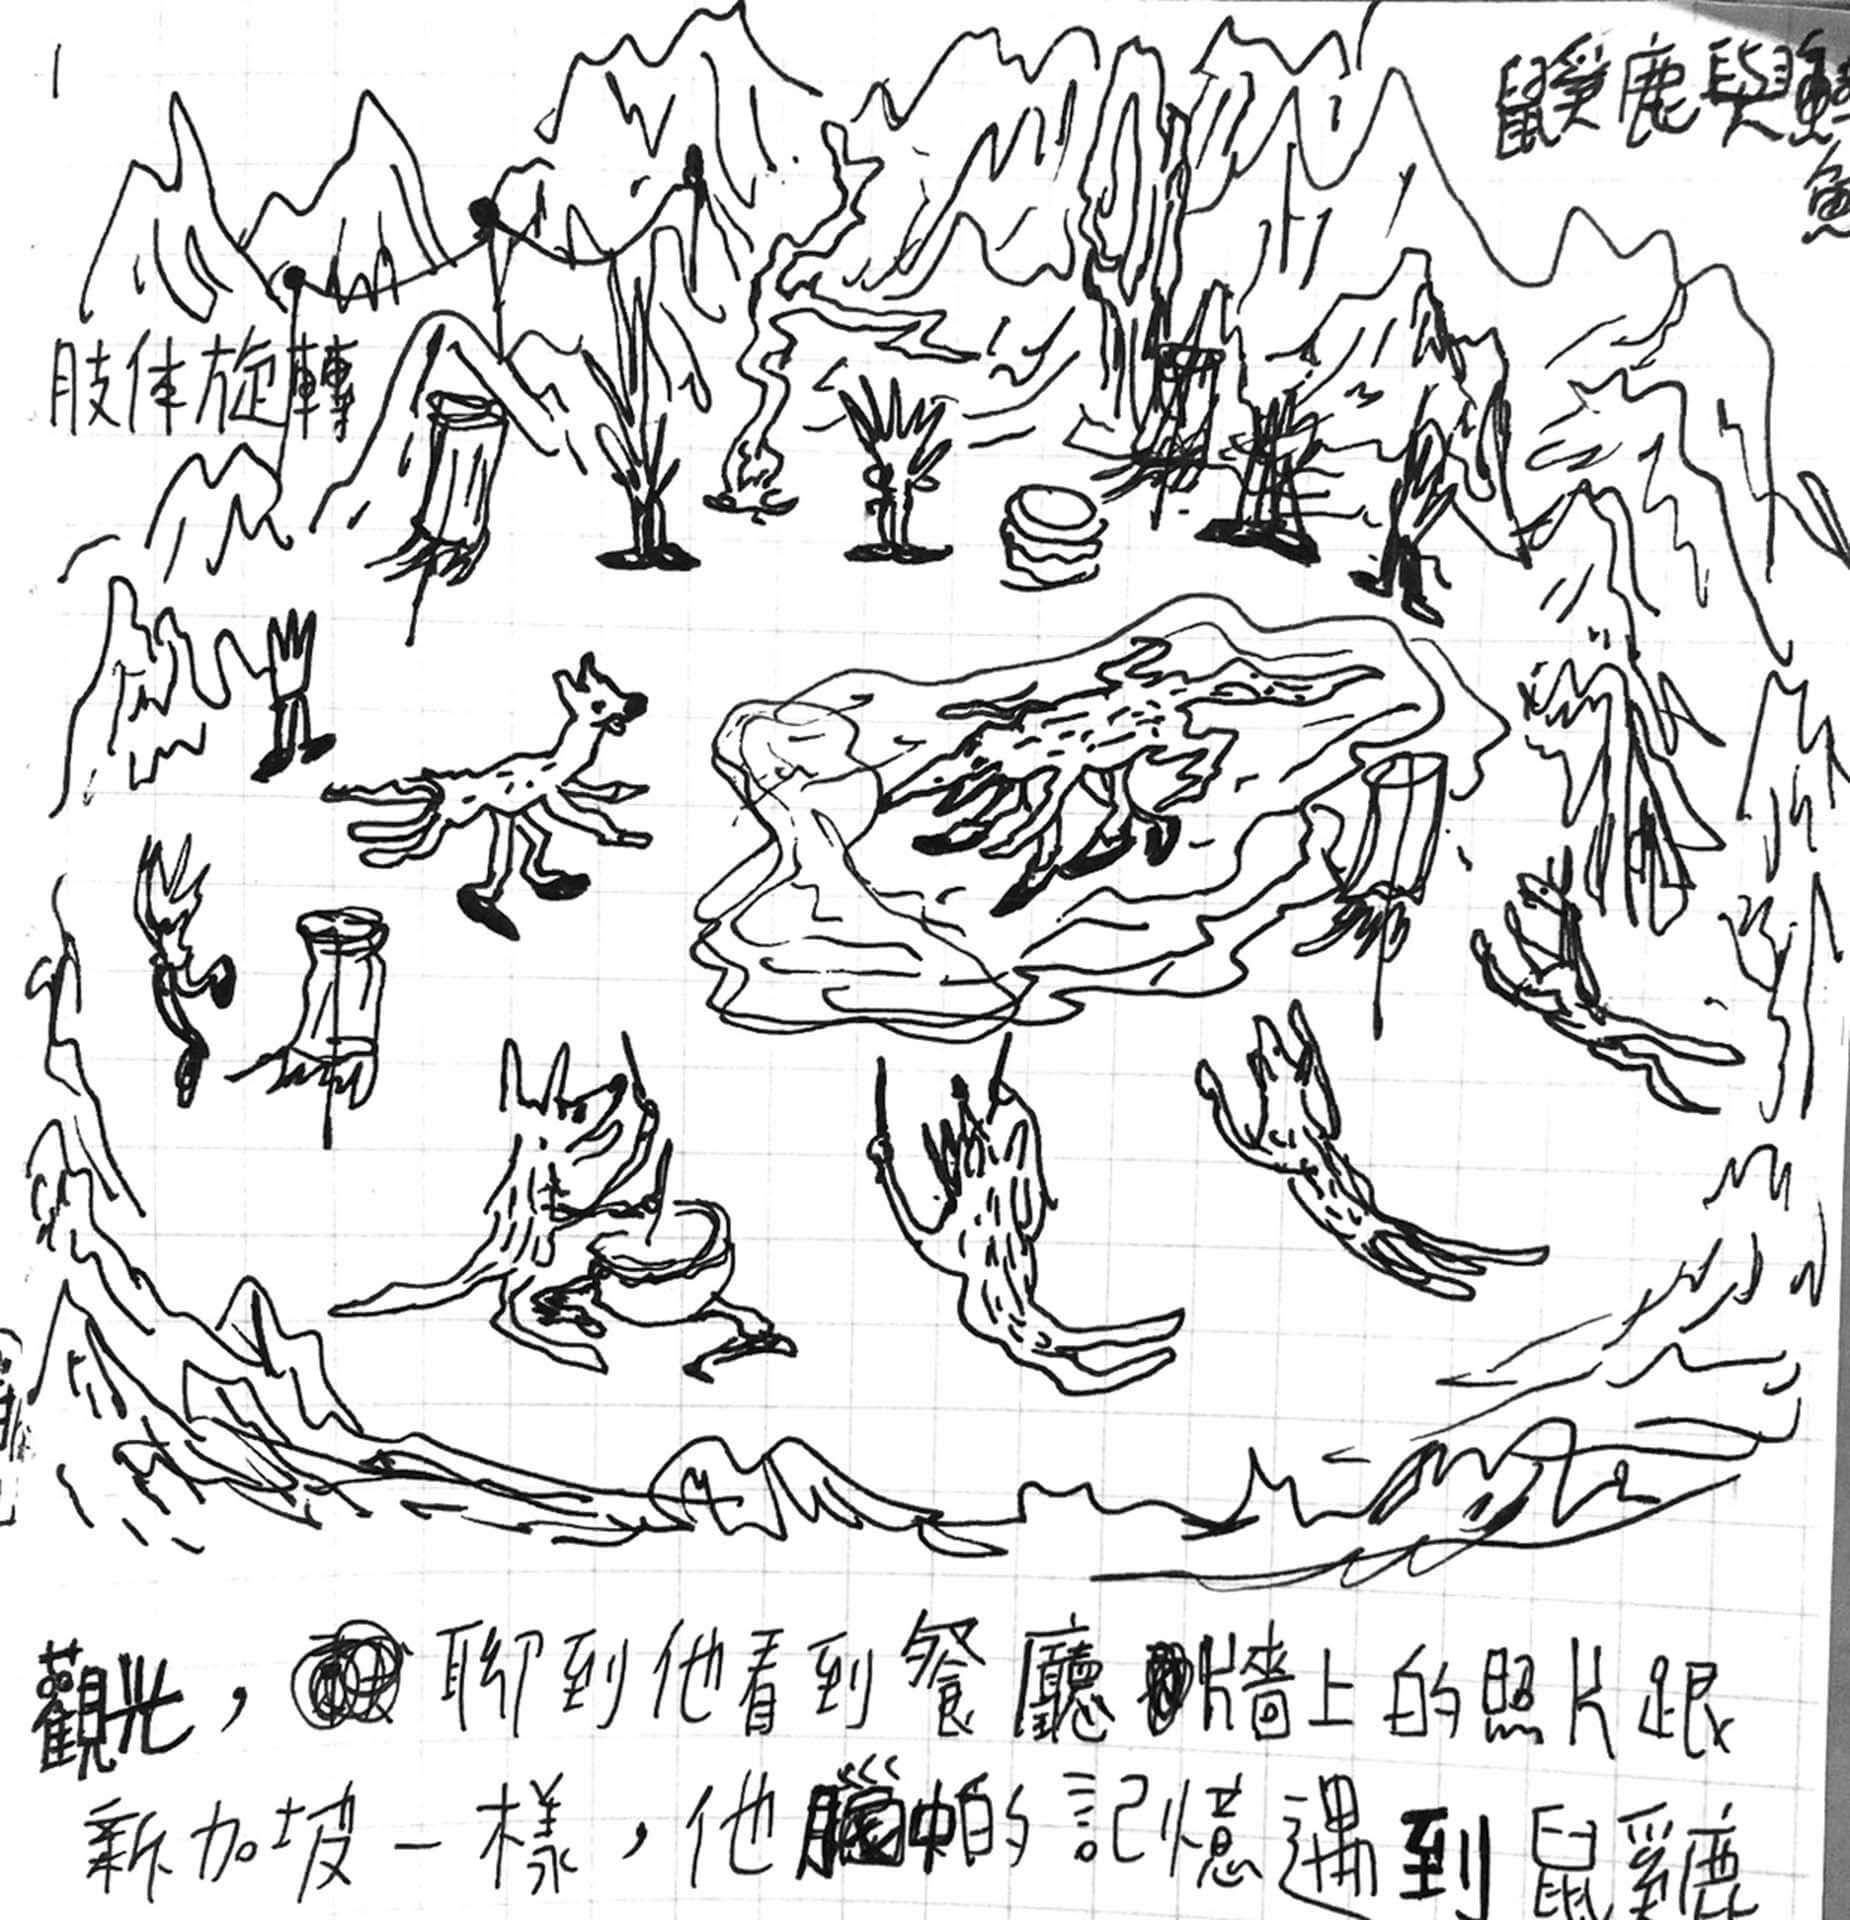 1
鼠奚鹿與鱷
魚
肢体旋轉
觀光，聊到他看到餐廳牆上的照片跟
新加坡一樣，他的記憶遇到鼠奚鹿